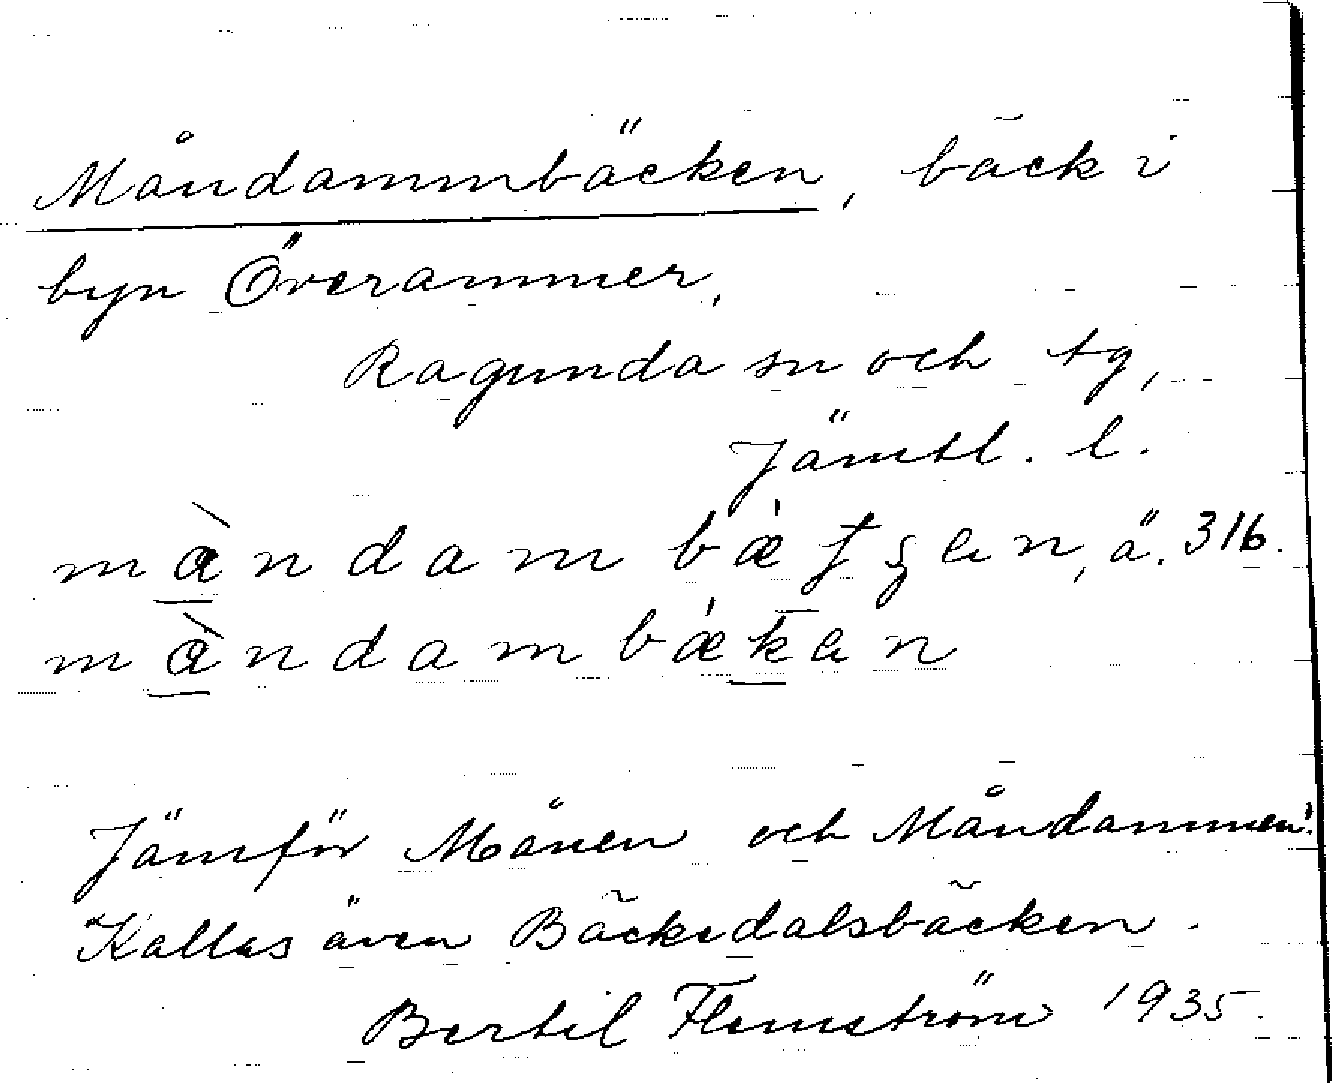 Måndammbäcken, bäck i
byn Överammer,
Ragunda sn och tg,
Jämtl. l.
ä. 316.
Jämför Månen och Måndammen!
Kallas även Bäckedalsbäcken.
Bertil Flemström 1935.